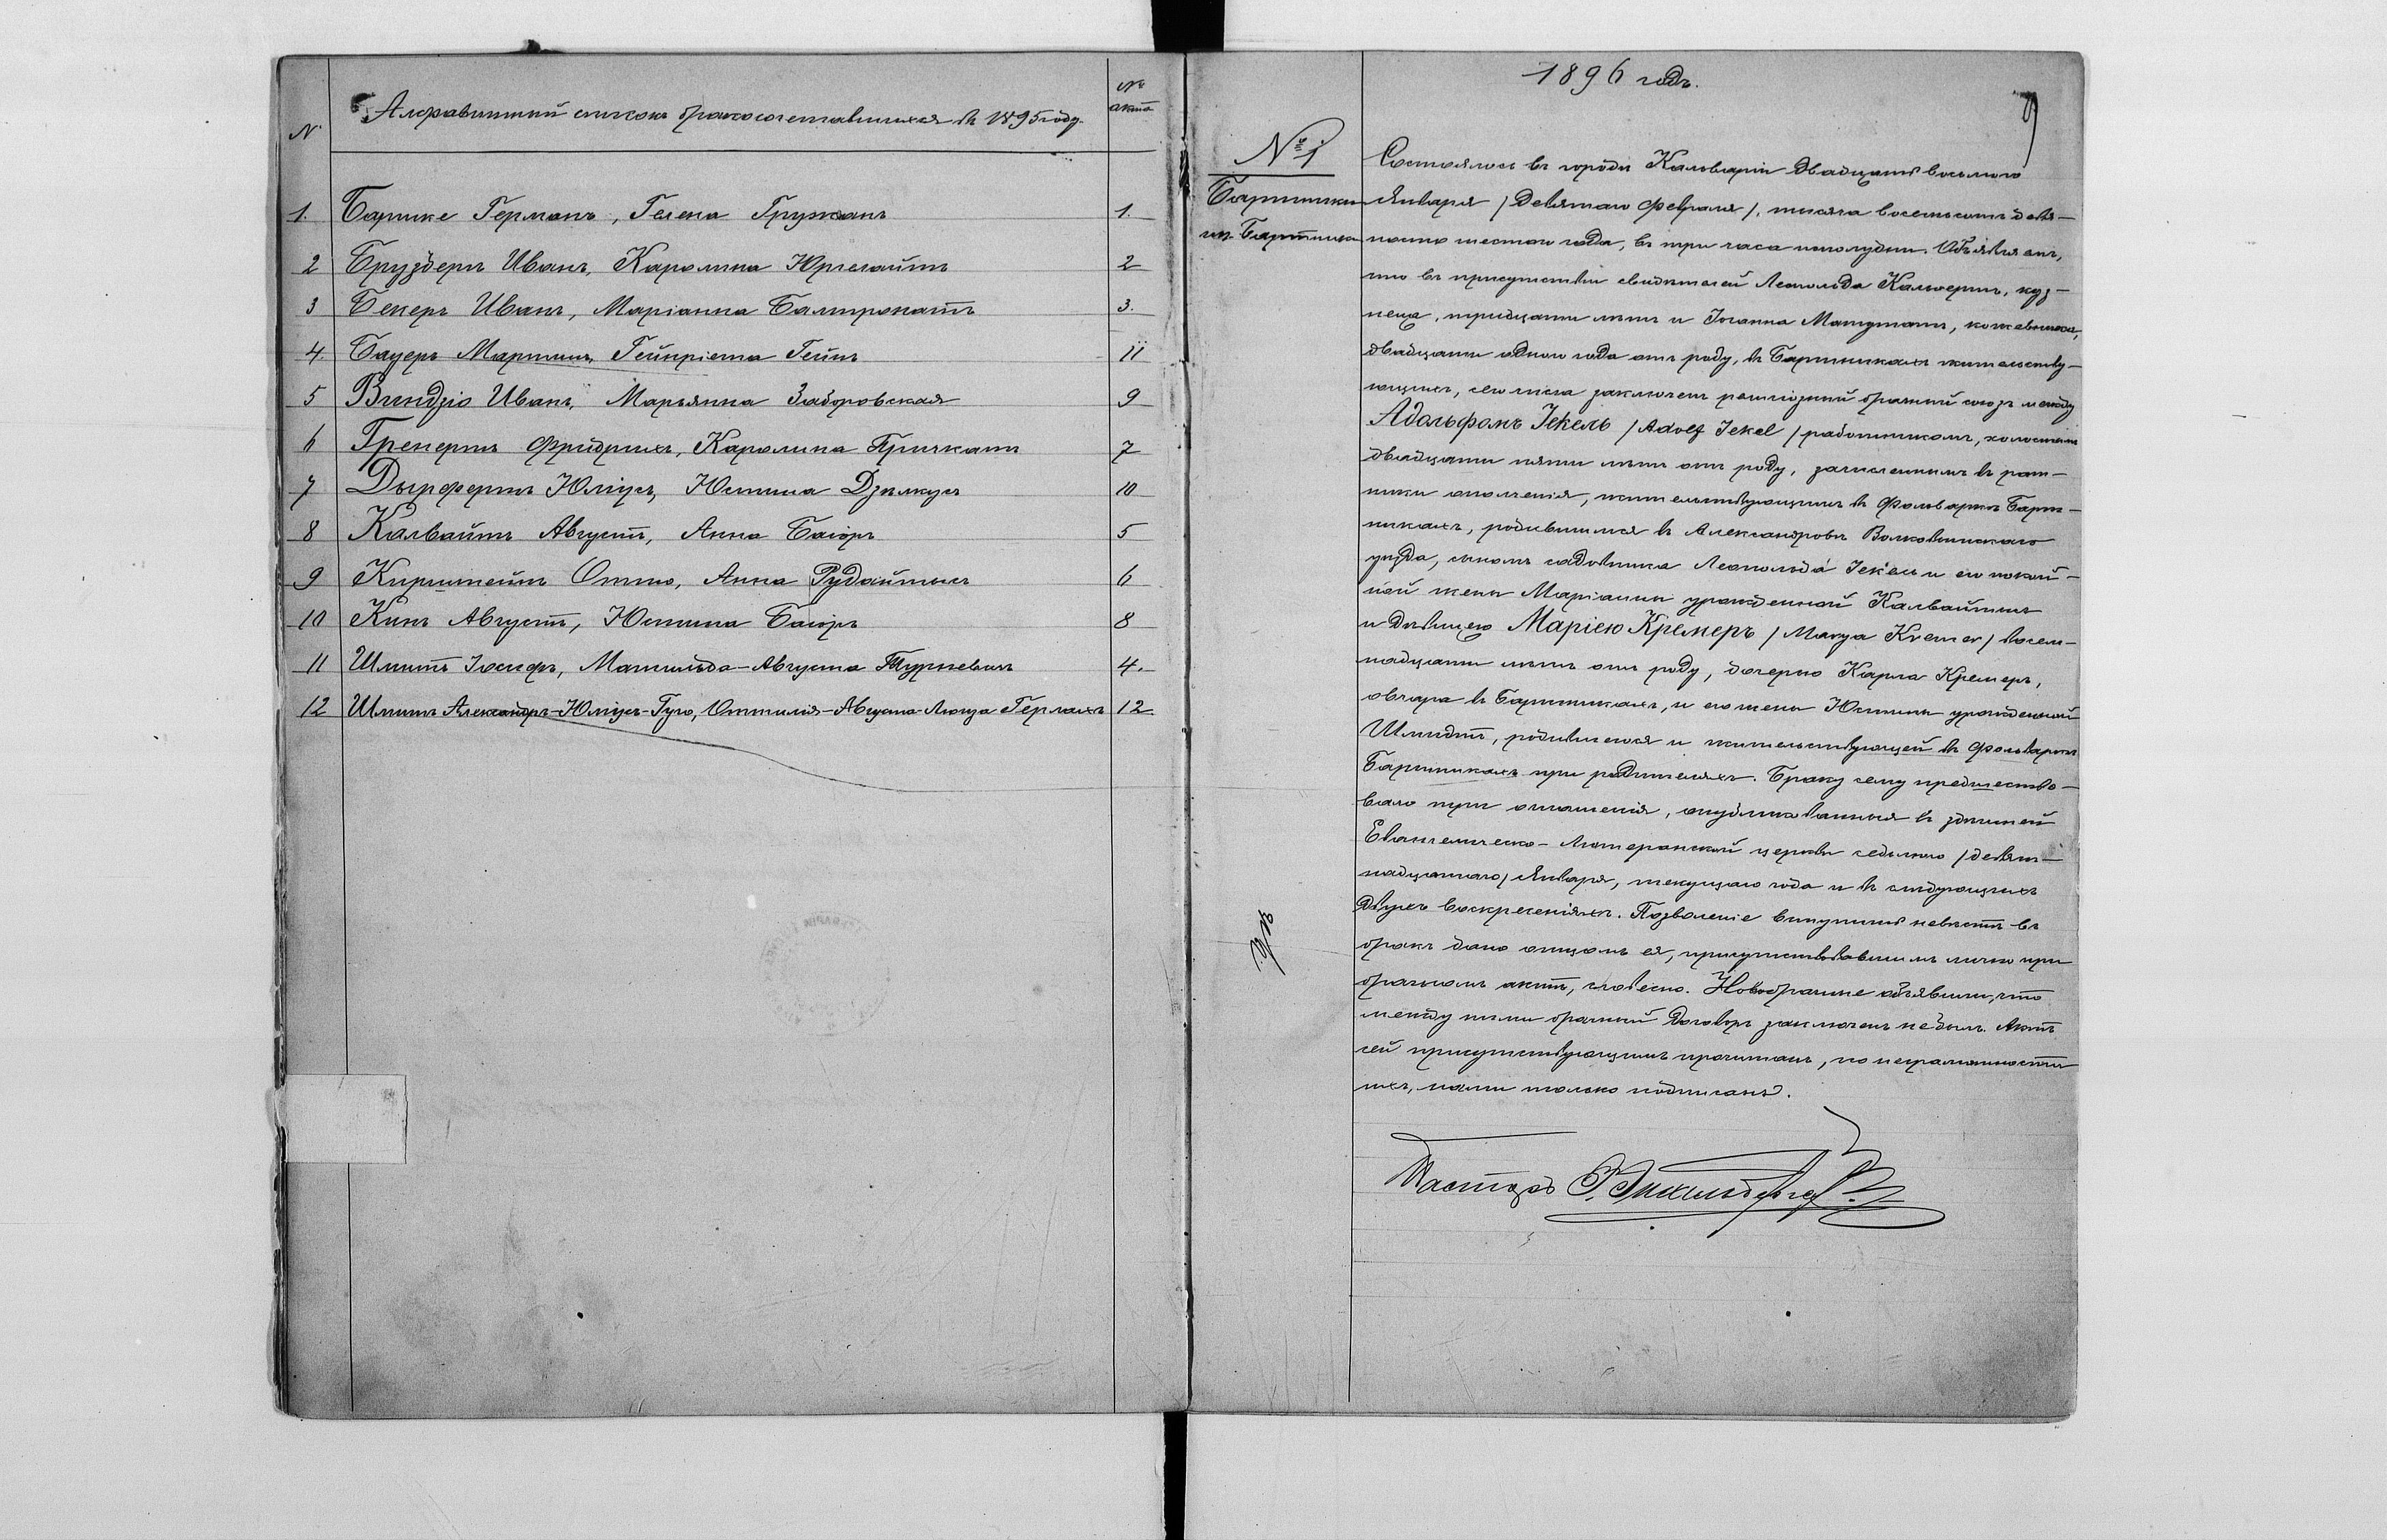 №
Алфавитный список бракосочетавшихся въ 1895 году.
№ акта
1. Барцке Германъ, Гелена Гружанъ 1.
2 Бруздерн Иванъ, Каролина Юргелайтъ 2
3 Бекеръ Иванъ, Маріанна Бампрокатъ 3.
4. Бауеръ Мартинъ, Гейнріета Гейнъ 11
5 Виндзіо Иванъ, Марьянна Заборовская 9
6 Гренертъ Фридрихъ, Каролина Причкатъ 7
7 Дырфертъ Юліусъ, Юстина Дзылкусъ 10
8 Калвайтъ Августъ, Анна Баіоръ 5
9 Кирштейнъ Отто, Анна Рудайтысъ 6
10 Кинъ Августъ, Юстина Баіоръ 8
11 Шмитъ Іосифъ, Матильда-Августа Турневичъ 4.
12 Шмитъ Александръ-Юліусъ-Гуго, Оттилія-Августа-Луиза Герлахъ 12.
1896 годъ.
9
№ 1
Бартники
Бартники
Состоялось въ городѣ Кальваріи двадцать восьмого
Января /девятаго Февраля/, тысяча восемьсотъ девя-
носто шестого года, въ три часа пополудни. Объявляемъ,
что въ присутствіи свидѣтелей Леопольда Кальвертъ, куз-
неца, тридцати лѣтъ и Іоганна Матутатъ, кожевника,
двадцати одного года отъ роду, въ Бартникахъ жительству-
ющихъ, сего числа заключенъ религіозный брачный союзъ между
Адольфомъ Іекель /Adolf Jekel/ работникомъ, холостымъ
двадцати пяти лѣтъ отъ роду, зачисленнымъ въ рат-
ники ополченія, жительствующимъ въ фольваркѣ Барт-
никахъ, родившимся въ Александровѣ Волковышскаго
уѣзда, сыномъ садовника Леопольда Іекель и его покой-
ной жены Маріанны урожденной Калвайтисъ
и дѣвицею Маріею Кремеръ /Marya Kremer/ восем-
надцати лѣтъ отъ роду, дочерью Карла Кремеръ,
овчара въ Бартникахъ, и его жены Юстины урожденной
Шмидтъ, родившеюся и жительствующей въ фольваркѣ
Бартникахъ при родителяхъ. Браку сему предшество-
вало три оглашенія, опубликованныя въ здѣшней
Евангелическо-Лютеранской церкви седьмого /девят-
надцатаго/ Января, текущаго года и въ слѣдующихъ
двухъ воскресеніяхъ. Позволеніе вступить невѣстѣ въ
бракъ дано отцомъ ея, присутствовавшимъ лично при
брачномъ актѣ, словесно. Новобрачные объявили, что
между ними брачный договоръ заключенъ не былъ. Актъ
сей присутствующимъ прочитанъ, по неграмотности
ихъ, нами только подписанъ.
Пасторъ